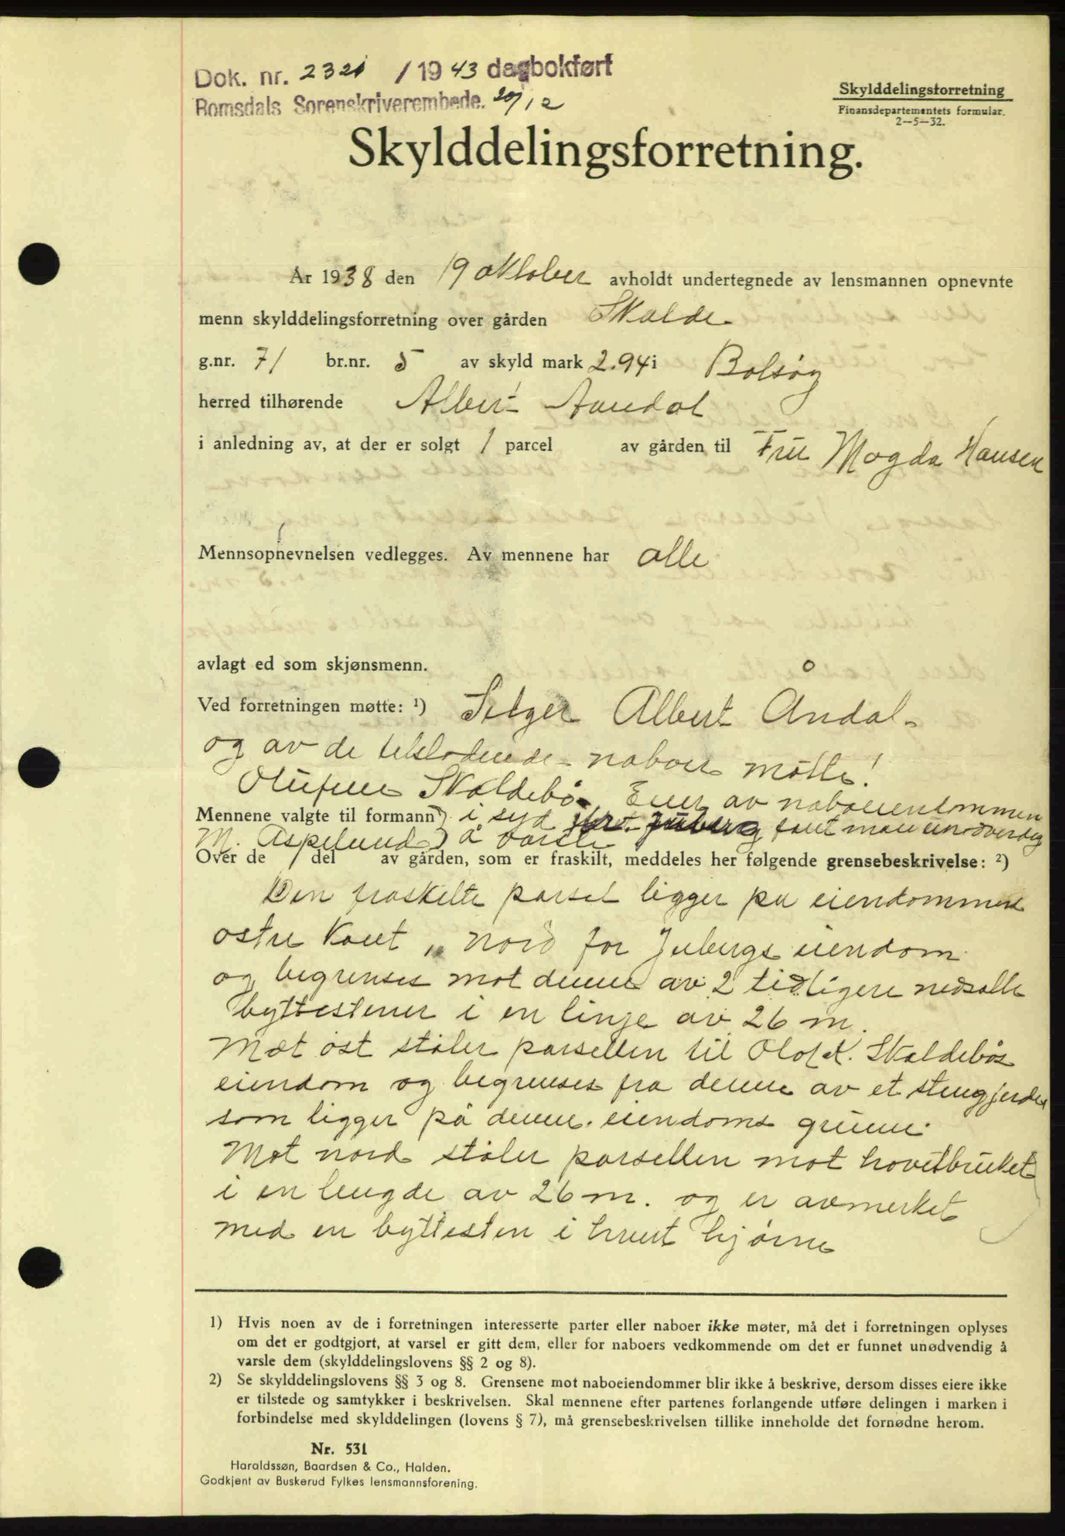 Dok. nr. 2321 / 1943 dagbokført
Romsdals Sorenskriverembede. 20/12
Skylddelingsforretning
Finansdepartementets formular.
2—5—32.
Skylddelingsforretning.
År 1938 den 19 oktober avholdt undertegnede av lensmannen opnevnte
menn skylddelingsforretning over gården Skalde
g.nr. 71 br.nr. 5 av skyld mark 2.94 i Bolsøy
herred tilhørende Albert Aandal
i anledning av, at der er solgt 1 parcel av gården til Fru Magda Hansen
Mennsopnevnelsen vedlegges. Av mennene har alle
avlagt ed som skjønsmenn.
Ved forretningen møtte: ¹) Selger Albert Åndal
og av de tilstødende naboer møtte!
Skaldebø, Eier av naboeiendommen
Mennene valgte til formann) i syd fant man unødvendig
M. Aspelund) å varsle
Over de / del av gården, som er fraskilt, meddeles her følgende grensebeskrivelse: ²)
Den fraskilte parsel ligger på eiendommens
østre kant, nord for Jubergs eiendom
og begrenses mot denne av 2 tidligere nedsatte
byttestener i en linje av 26 m.
Mot øst støter parsellen til Olof K. Skaldebøs
eiendom og begrenses fra denne av et stengjerde
som ligger på denne eiendoms grunn.
Mot nord støter parsellen mot hovedbruket
i en lengde av 26 m. og er avmerket
med en byttesten i hvert hjørne
1) Hvis noen av de i forretningen interesserte parter eller naboer ikke møter, må det i forretningen oplyses
om det er godtgjort, at varsel er gitt dem, eller for naboers vedkommende om det er funnet unødvendig å
varsle dem (skylddelingslovens §§ 2 og 8).
2) Se skylddelingslovens §§ 3 og 8. Grensene mot naboeiendommer blir ikke å beskrive, dersom disses eiere ikke
er tilstede og samtykker i beskrivelsen. Skal mennene efter partenes forlangende utføre delingen i marken i
forbindelse med skylddelingen (lovens § 7), må grensebeskrivelsen tillike inneholde det fornødne herom.
Nr. 531
Haraldssøn, Baardsen & Co., Halden.
Godkjent av Buskerud Fylkes lensmannsforening.